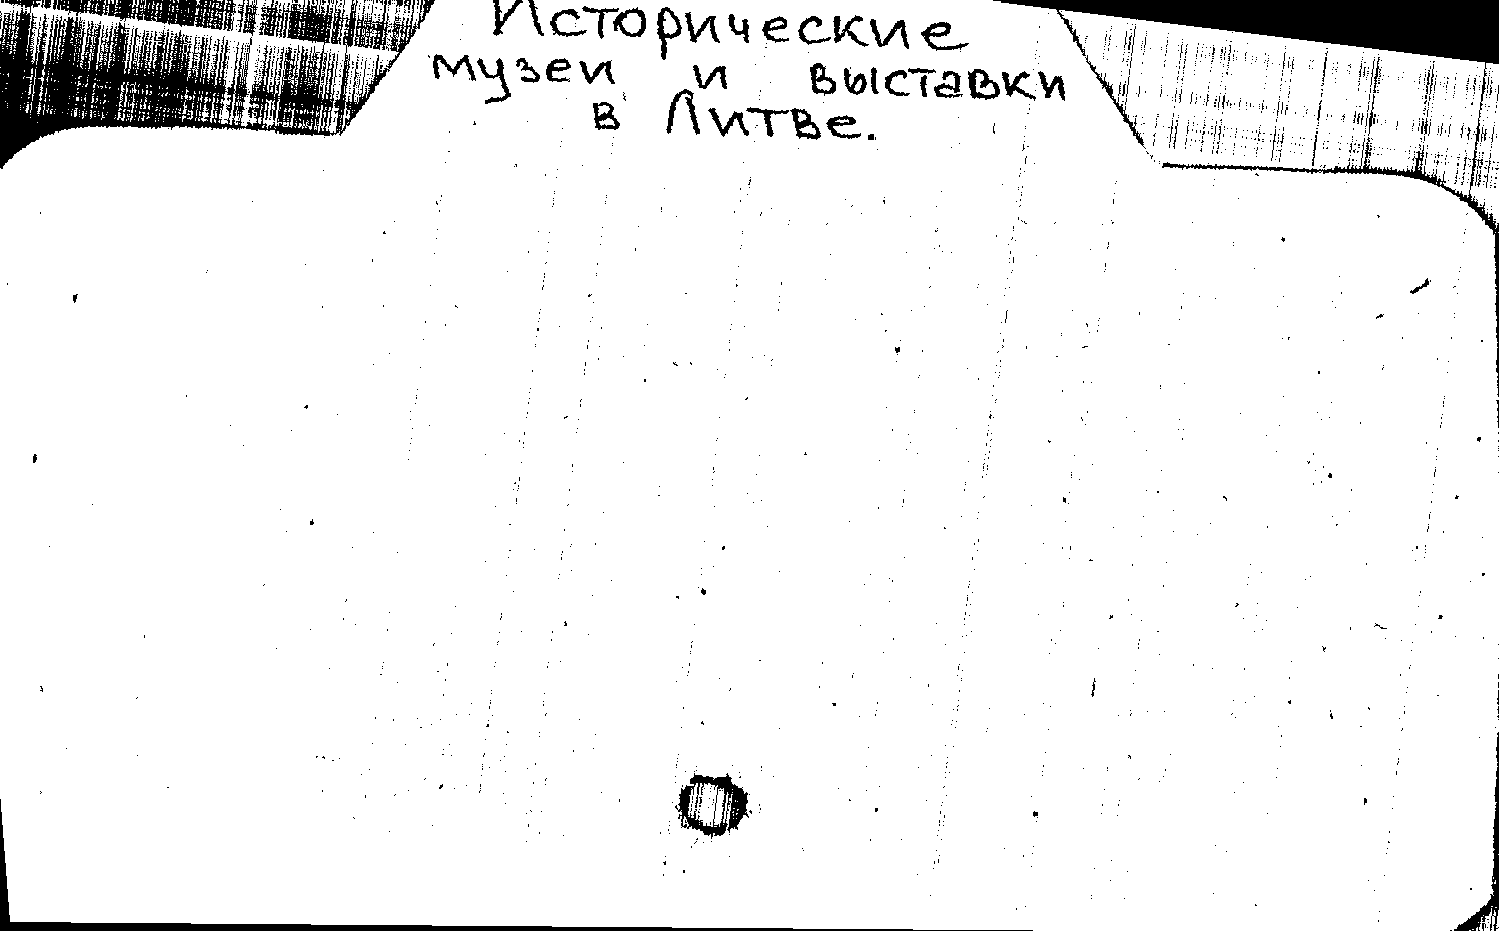 Исторические
музеи и выставки
в Литве.